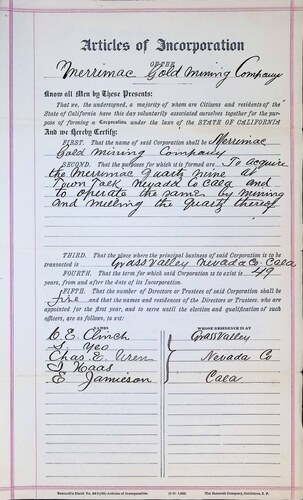 Articles of Incorporation
OF THE
Merrimac Gold Mining Company
Know all Men by These Presents:
That we, the undersigned, a majority of whom are Citizens and residents of the
State of California have this day voluntarily associated ourselves together for the pur-
pose of forming a Corporation under the laws of the STATE OF CALIFORNIA
And we Hereby Certify:
FIRST. That the name of said Corporation shall be Merrimac
Gold Mining Company
SECOND. That the purposes for which it is formed are To acquire
the Merrimac Quartz Mine at
Town Talk Nevada Co Cala and
to operate the same by mining
and milling the Quartz thereof
THIRD. That the place where the principal business of said Corporation is to be
transacted is Grass Valley Nevada Co. Cala
FOURTH. That the term for which said Corporation is to exist is 49
years, from and after the date of its Incorporation.
FIFTH. That the number of Directors or Trustees of said Corporation shall be
five and that the names and residences of the Directors or Trustees, who are
appointed for the first year, and to serve until the election and qualification of such
officers, are as follows, to wit:
NAMES WHOSE RESIDENCE IS AT
C. E. Clinch Grass Valley
S. Yeo
Chas. E. Uren Nevada Co
S Haas
E Jamieson Cala